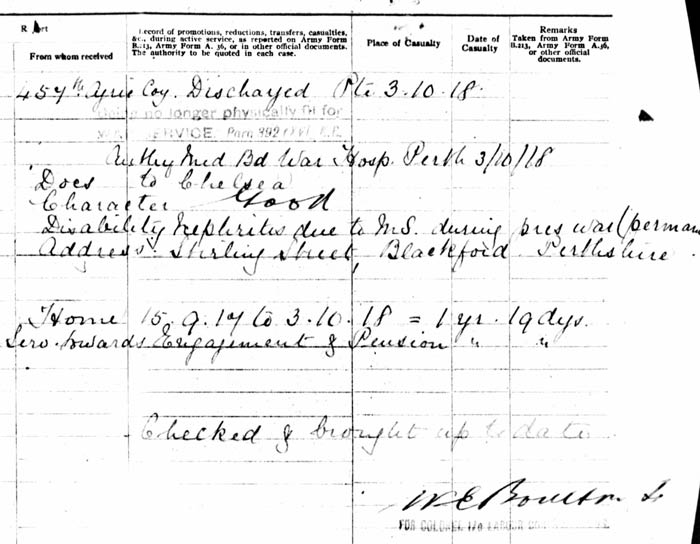 From whom received
Record of promotions, reductions, transfers, casualties,
&c., during active service, as reported on Army Form
B.213, Army Form A. 36, or in other official documents.
The authority to be quoted in each case.
Place of Casualty
Date of
Casualty
Remarks
Taken from Army Form
B.213, Army Form A.36,
or other official
documents.
457th Agric Coy. Discharged Pte 3.10.18.
being no longer physically fit for
WAR SERVICE. Para 392 (XVI) K.R.
Authy Med Bd War Hosp. Perth 3/10/18
Docs to Chelsea
Character Good
Disability Nephritis due to M.S. during pres war (perman
Address. Stirling Street, Blackford Perthshire.
Home 15.9.17 to 3.10.18 = 1 yr. 19 dys.
Serv. towards Engagement & Pension " "
Checked & brought up to date
FOR COLONEL I/c LABOUR